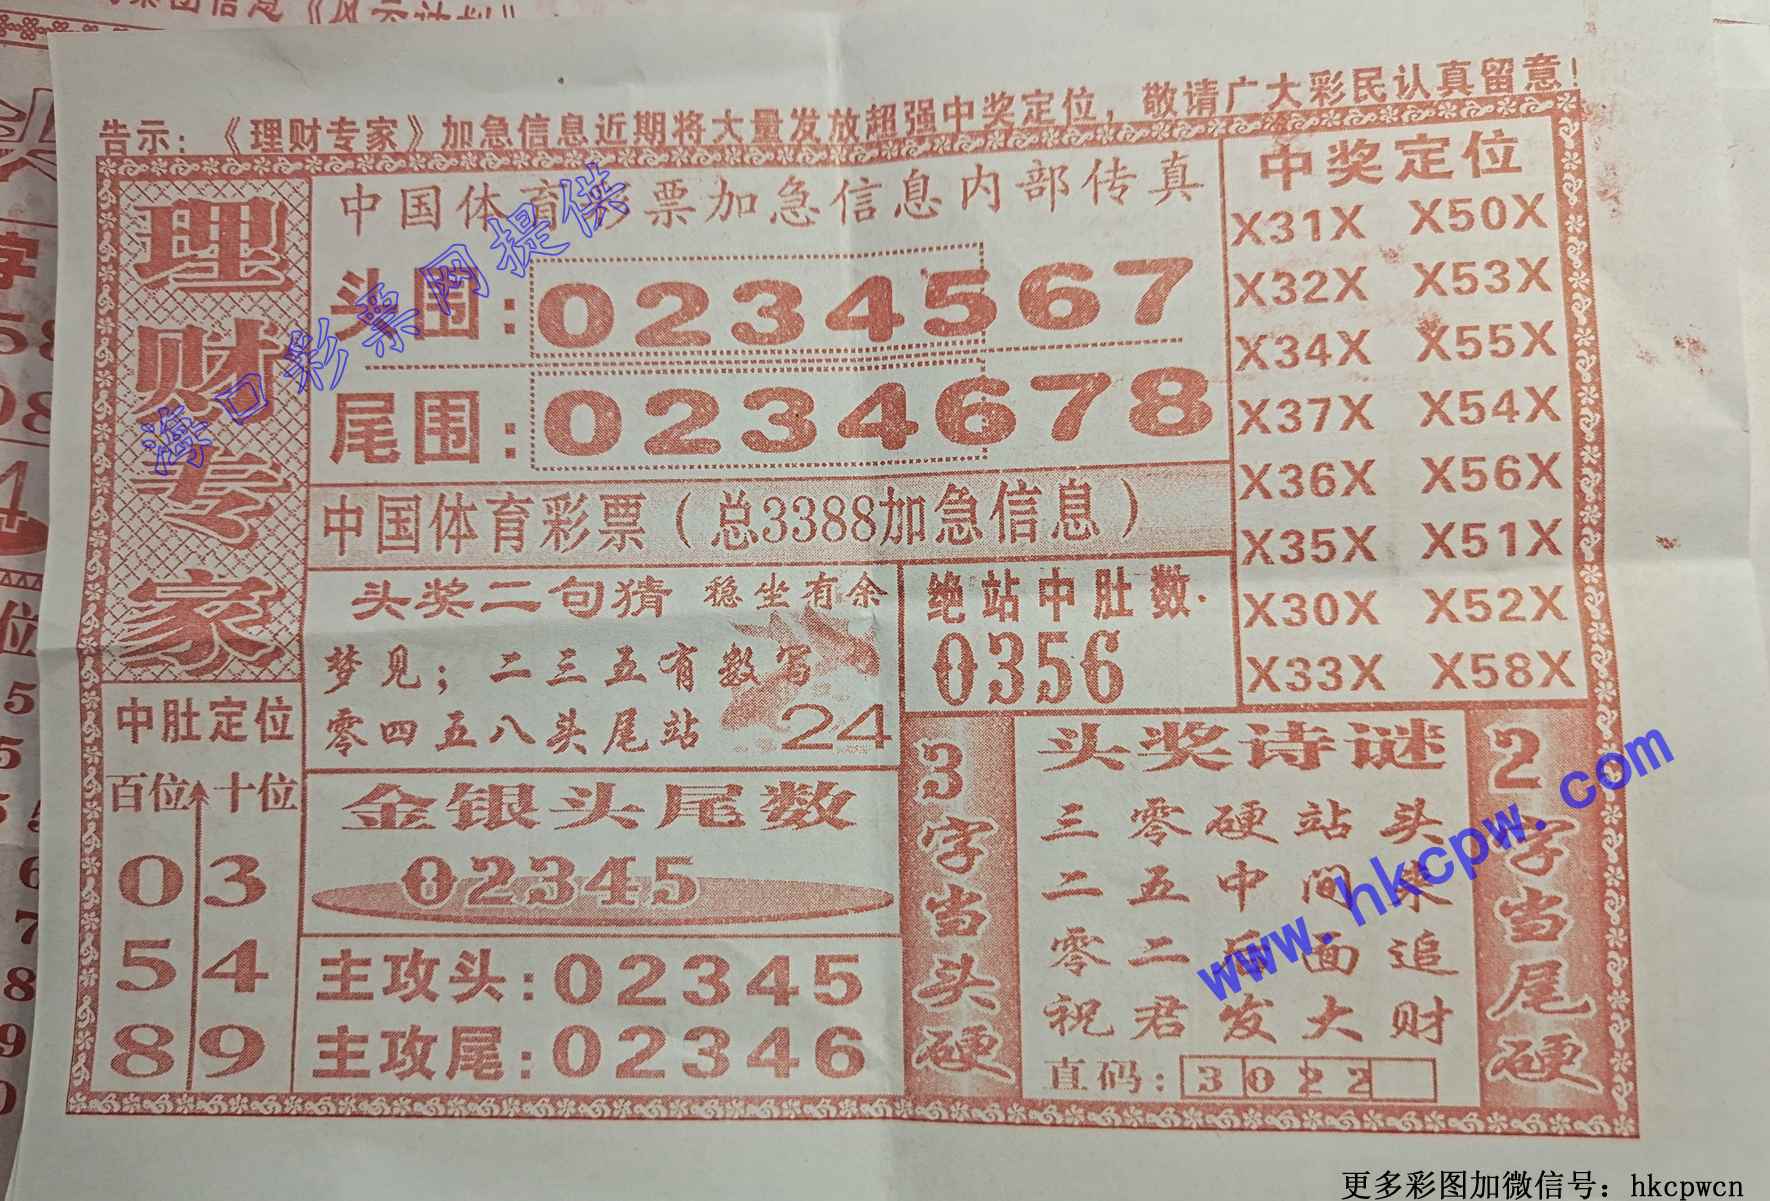 告示：《理财专家》加急信息近期将大量发放超强中奖定位，敬请广大彩民认真留意！
理财专家
中国体育彩票加急信息内部传真
头围：0234567
尾围：0234678
中国体育彩票（总3388加急信息）
头奖二句猜 稳坐有余
梦见；二三五有数写
零四五八头尾站 24
绝站中肚数.
0356
中奖定位
X31X X50X
X32X X53X
X34X X55X
X37X X54X
X36X X56X
X35X X51X
X30X X52X
X33X X58X
中肚定位
百位 十位
0 3
5 4
8 9
金银头尾数
02345
主攻头：02345
主攻尾：02346
3字当头硬
头奖诗谜
三零硬站头
二五中间来
零二后面追
祝君发大财
直码：3022
2字当尾硬
海口彩票网提供
www.hkcpw.com
更多彩图加微信号：hkcpwcn